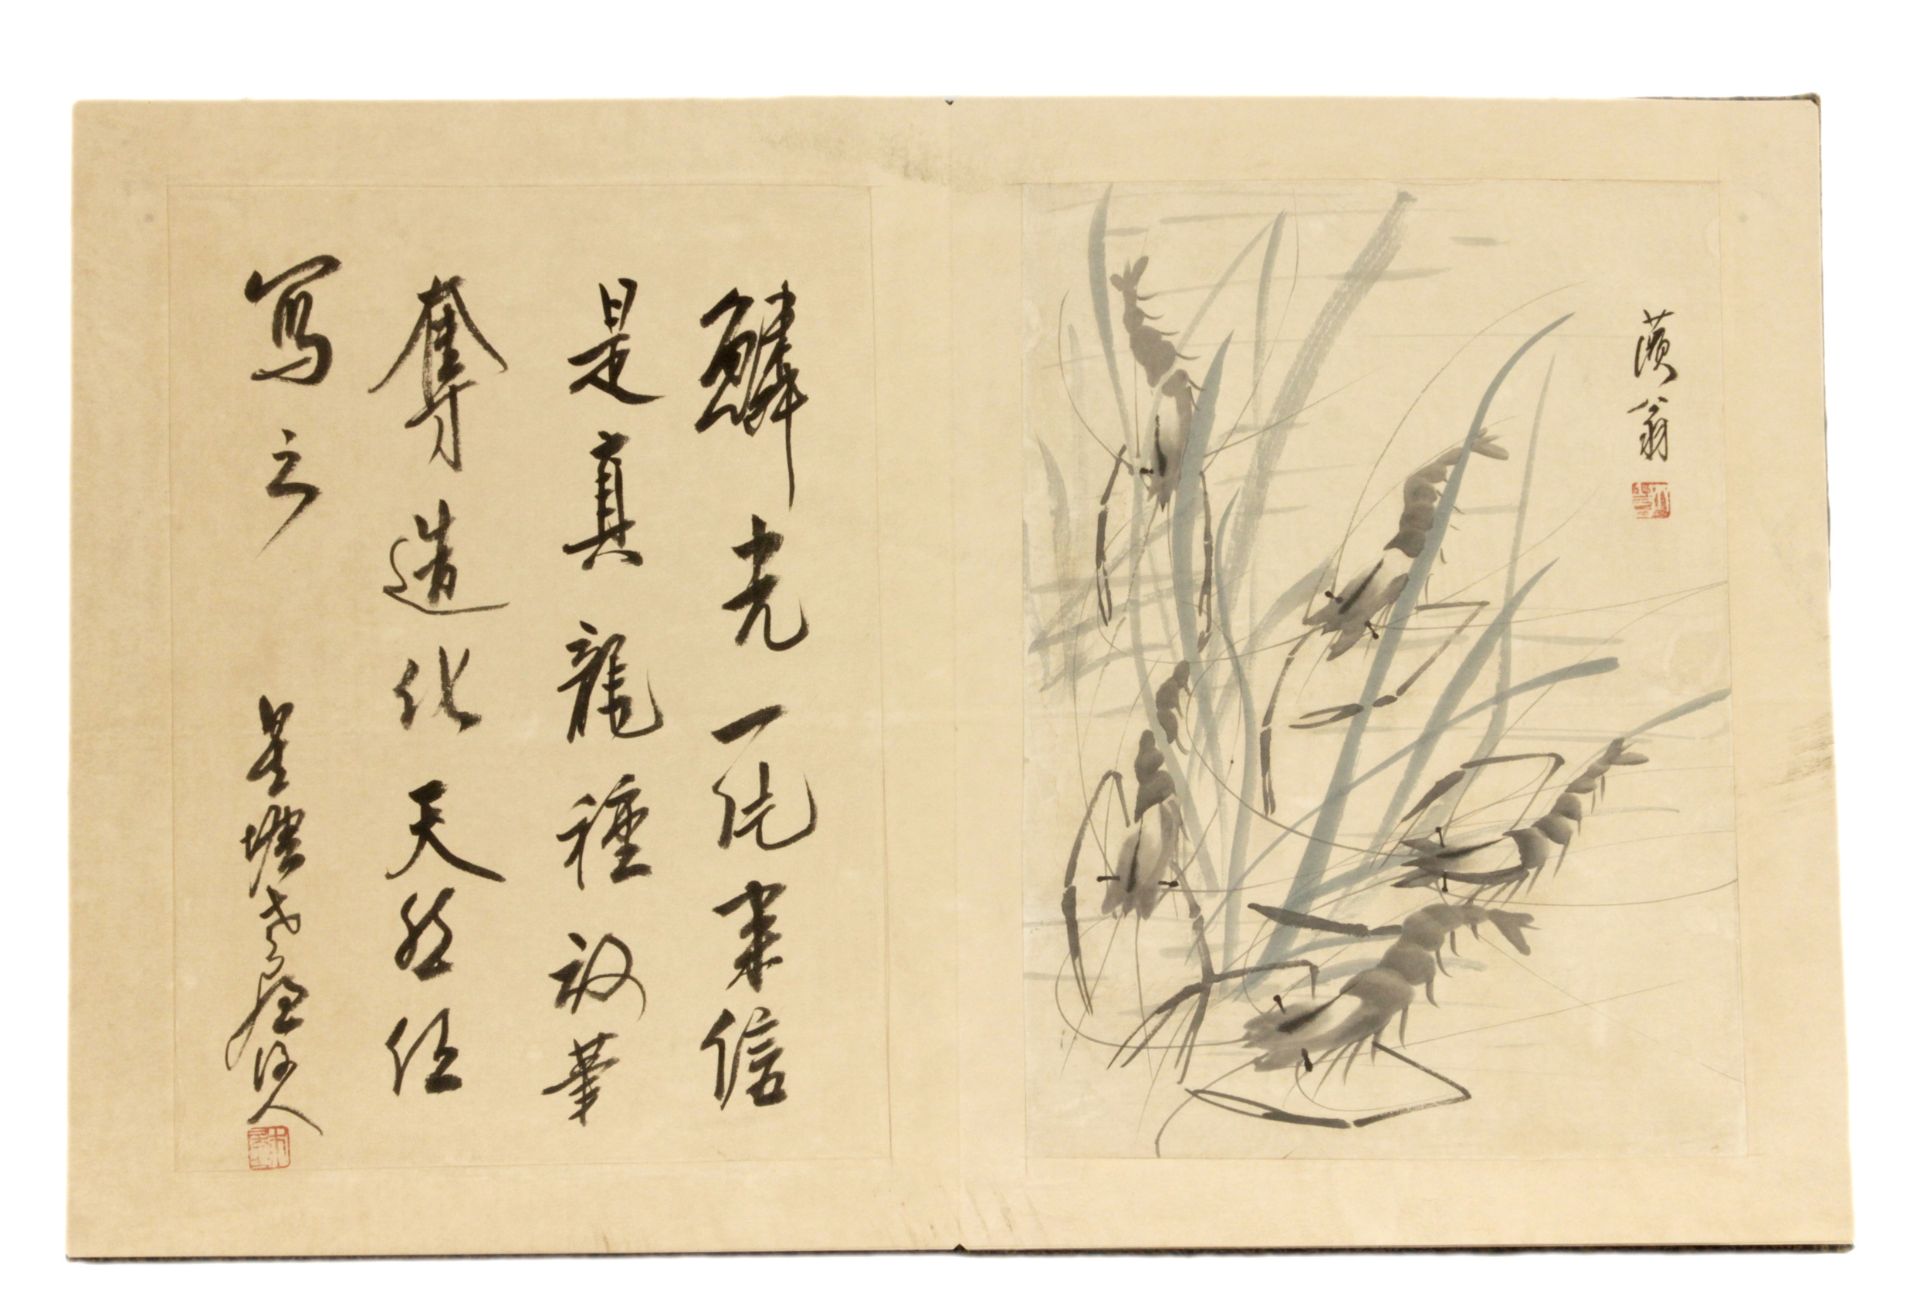 濱翁
鱗光一紙來信
是真龍種放筆
奪造化天然任
寫之
星塘老屋後人